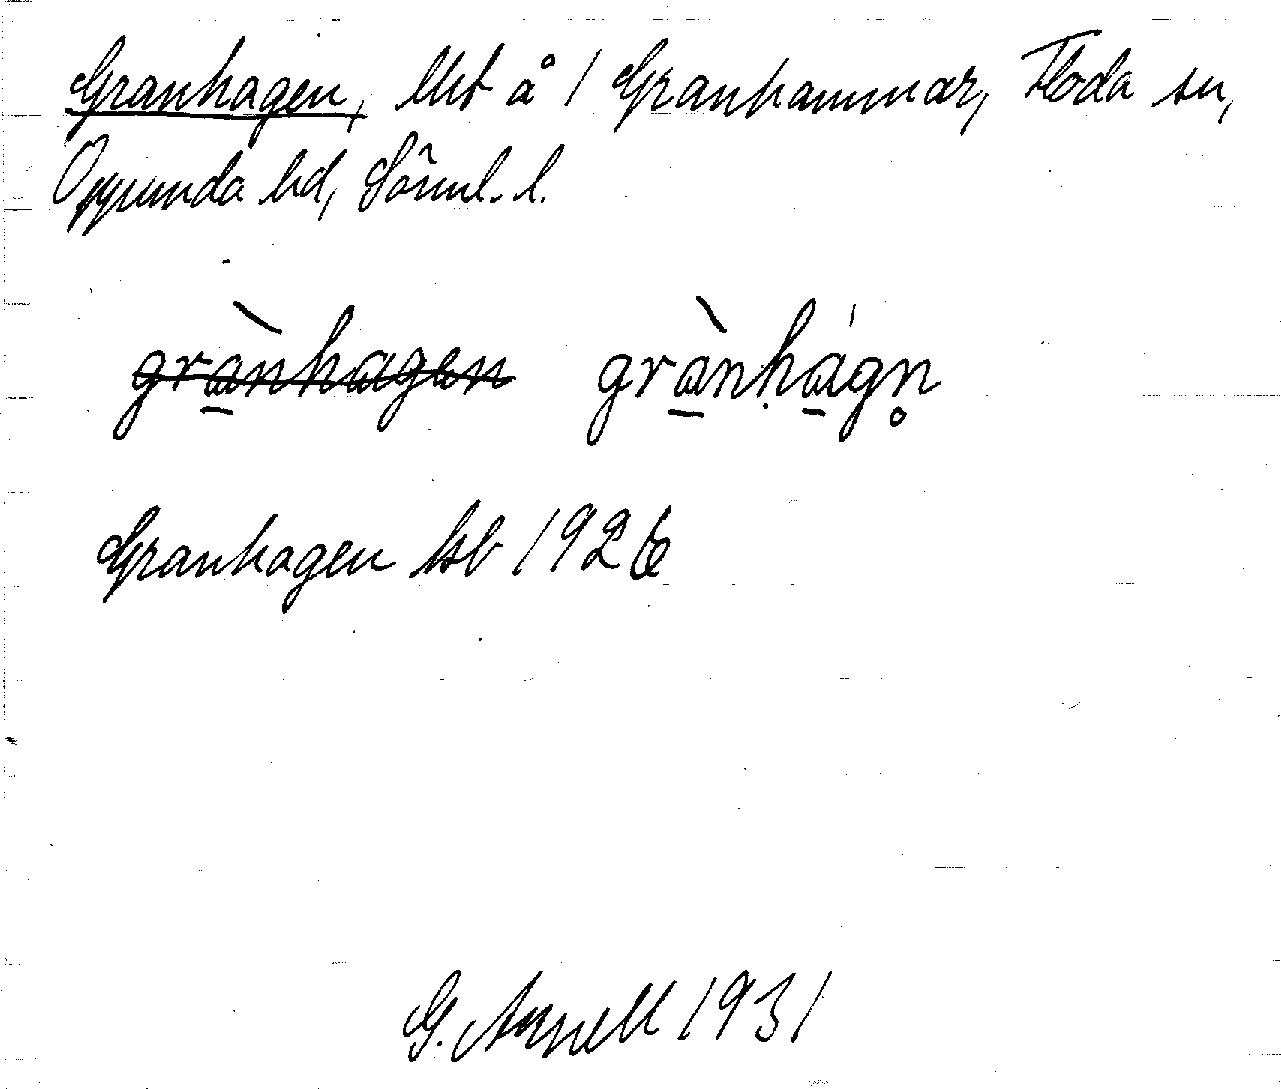 Granhagen, lht å 1 Granhammar, Floda sn,
Oppunda hd, Sörml. l.
granhagen grànhágn̥
Granhagen hsb 1926
G. Arnell 1931